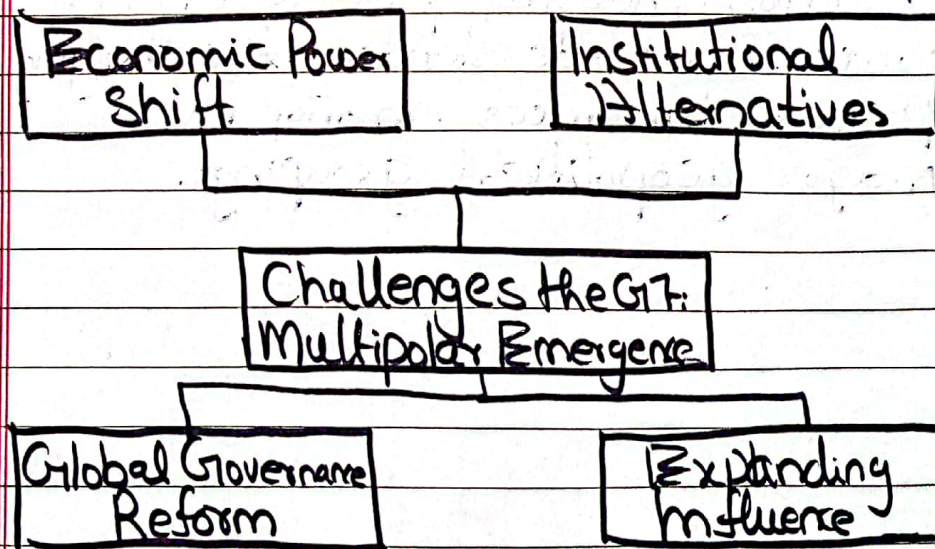 Economic Power
Shift
Institutional
Alternatives
Challenges the G7:
Multipolar Emergence
Global Governance
Reform
Expanding
Influence